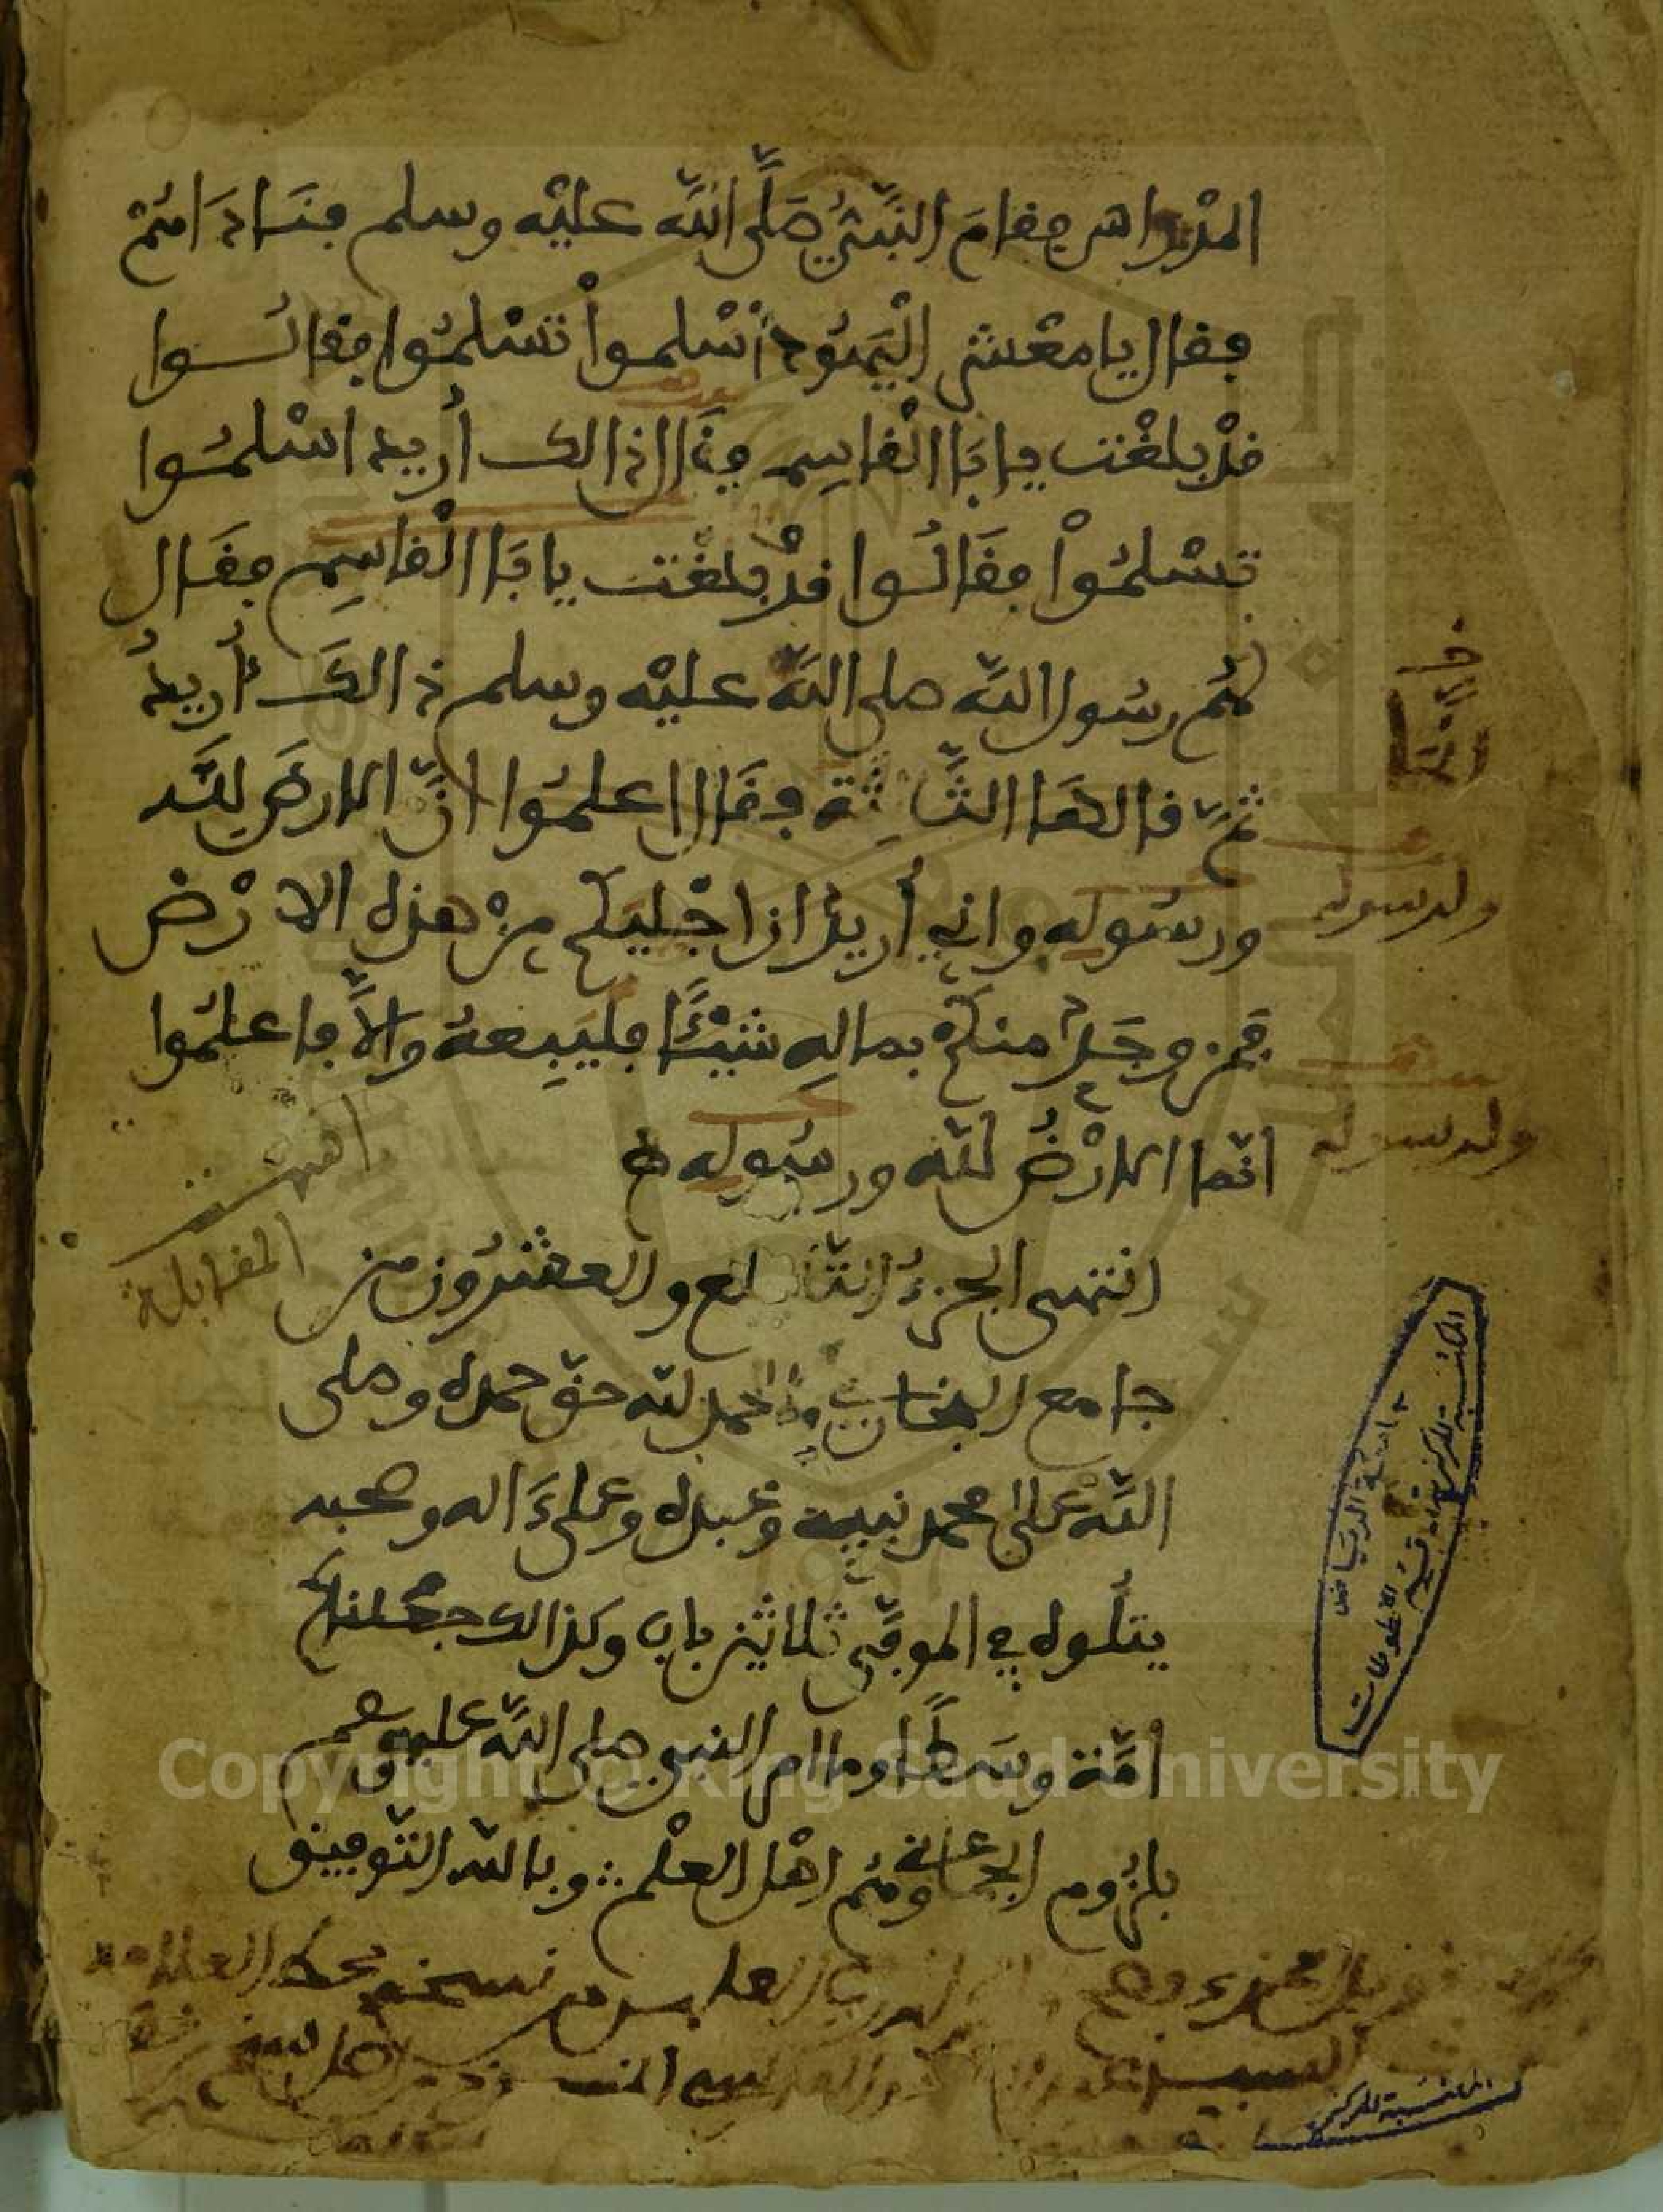 المدراس فقام النبي صلى الله عليه وسلم فناداهم
فقال يا معشر اليهود أسلموا تسلموا فقالوا
قد بلغت يابا القاسم فقال ذالك أريد اسلموا
تسلموا فقالوا قد بلغت يابا القاسم فقال
لهم رسول الله صلى الله عليه وسلم ذالك أريد
ثم قالها الثالثة فقال اعلموا ان الارض لله
ورسوله واني أريد ان اجليكم من هذه الارض
فمن وجد منكم بماله شيئا فليبعه والا فاعلموا
انما الارض لله ورسوله
ولرسوله
ولرسوله
انتهت
المقابلة
انتهى الجزء التاسع والعشرون من
جامع البخاري والحمد لله حق حمده وصلى
الله على محمد نبيه وعبده وعلى ءاله وصحبه
يتلوه في الموفى ثلاثين باب وكذالك جعلناكم
امة وسطا وما امر النبي صلى الله عليه وسلم
بلزوم الجماعة وهم اهل العلم وبالله التوفيق
نسخة بخط العلامة
جامعة الرياض
المكتبة المركزية قسم المخطوطات
المكتبة المركزية
Copyright © King Saud University
1957